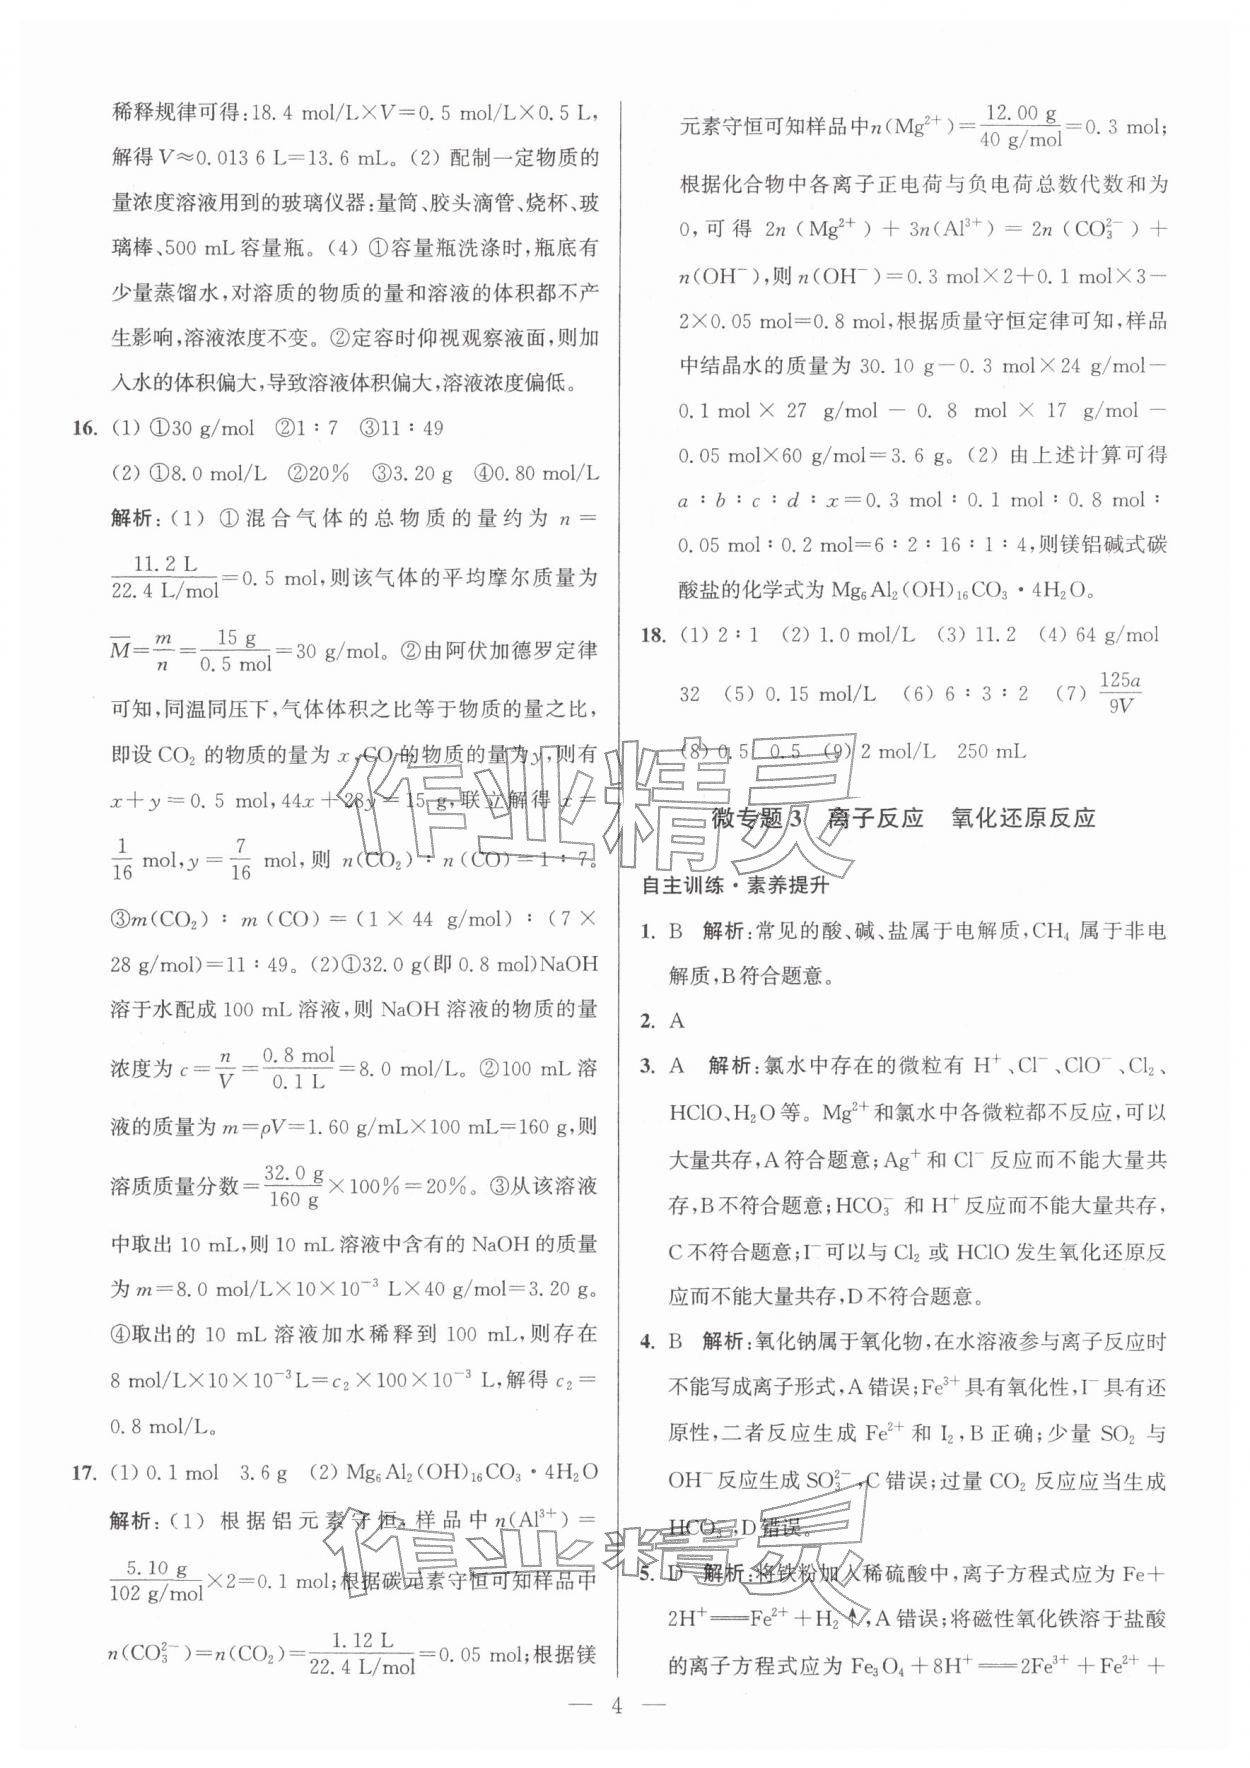 稀释规律可得:18.4 mol/L×V=0.5 mol/L×0.5 L,
解得V≈0.013 6 L=13.6 mL。(2) 配制一定物质的
量浓度溶液用到的玻璃仪器:量筒、胶头滴管、烧杯、玻
璃棒、500 mL容量瓶。(4) ①容量瓶洗涤时,瓶底有
少量蒸馏水,对溶质的物质的量和溶液的体积都不产
生影响,溶液浓度不变。②定容时仰视观察液面,则加
入水的体积偏大,导致溶液体积偏大,溶液浓度偏低。
16. (1) ①30 g/mol ②1∶7 ③11∶49
(2) ①8.0 mol/L ②20% ③3.20 g ④0.80 mol/L
解析:(1) ①混合气体的总物质的量约为 n=
11.2 L/22.4 L/mol=0.5 mol,则该气体的平均摩尔质量为
M̅=m/n=15 g/0.5 mol=30 g/mol。②由阿伏加德罗定律
可知,同温同压下,气体体积之比等于物质的量之比,
即设CO₂的物质的量为x,CO的物质的量为y,则有
x+y=0.5 mol,44x+28y=15 g,联立解得 x=
1/16 mol,y=7/16 mol,则 n(CO₂)∶n(CO)=1∶7。
③m(CO₂)∶m(CO)=(1×44 g/mol)∶(7×
28 g/mol)=11∶49。(2)①32.0 g(即0.8 mol)NaOH
溶于水配成100 mL溶液,则NaOH溶液的物质的量
浓度为c=n/V=0.8 mol/0.1 L=8.0 mol/L。②100 mL溶
液的质量为m=ρV=1.60 g/mL×100 mL=160 g,则
溶质质量分数=32.0 g/160 g×100%=20%。③从该溶液
中取出10 mL,则10 mL溶液中含有的NaOH的质量
为m=8.0 mol/L×10×10⁻³ L×40 g/mol=3.20 g。
④取出的10 mL溶液加水稀释到100 mL,则存在
8 mol/L×10×10⁻³L=c₂×100×10⁻³ L,解得c₂=
0.8 mol/L。
17. (1) 0.1 mol 3.6 g (2) Mg₆Al₂(OH)₁₆CO₃·4H₂O
解析:(1) 根据铝元素守恒,样品中n(Al³⁺)=
5.10 g/102 g/mol×2=0.1 mol;根据碳元素守恒可知样品中
n(CO₃²⁻)=n(CO₂)=1.12 L/22.4 L/mol=0.05 mol;根据镁
元素守恒可知样品中n(Mg²⁺)=12.00 g/40 g/mol=0.3 mol;
根据化合物中各离子正电荷与负电荷总数代数和为
0,可得 2n(Mg²⁺)+3n(Al³⁺)=2n(CO₃²⁻)+
n(OH⁻),则n(OH⁻)=0.3 mol×2+0.1 mol×3-
2×0.05 mol=0.8 mol,根据质量守恒定律可知,样品
中结晶水的质量为30.10 g-0.3 mol×24 g/mol-
0.1 mol×27 g/mol-0.8 mol×17 g/mol-
0.05 mol×60 g/mol=3.6 g。(2) 由上述计算可得
a∶b∶c∶d∶x=0.3 mol∶0.1 mol∶0.8 mol∶
0.05 mol∶0.2 mol=6∶2∶16∶1∶4,则镁铝碱式碳
酸盐的化学式为Mg₆Al₂(OH)₁₆CO₃·4H₂O。
18. (1) 2∶1 (2) 1.0 mol/L (3) 11.2 (4) 64 g/mol
32 (5) 0.15 mol/L (6) 6∶3∶2 (7) 125a/9V
(8) 0.5 0.5 (9) 2 mol/L 250 mL
微专题3 离子反应 氧化还原反应
自主训练·素养提升
1. B 解析:常见的酸、碱、盐属于电解质,CH₄属于非电
解质,B符合题意。
2. A
3. A 解析:氯水中存在的微粒有 H⁺、Cl⁻、ClO⁻、Cl₂、
HClO、H₂O等。Mg²⁺和氯水中各微粒都不反应,可以
大量共存,A符合题意;Ag⁺和Cl⁻反应而不能大量共
存,B不符合题意;HCO₃⁻和H⁺反应而不能大量共存,
C不符合题意;I⁻可以与Cl₂或HClO发生氧化还原反
应而不能大量共存,D不符合题意。
4. B 解析:氧化钠属于氧化物,在水溶液参与离子反应时
不能写成离子形式,A错误;Fe³⁺具有氧化性,I⁻具有还
原性,二者反应生成Fe²⁺和I₂,B正确;少量SO₂与
OH⁻反应生成SO₃²⁻,C错误;过量CO₂反应应当生成
HCO₃⁻,D错误。
5. D 解析:将铁粉加入稀硫酸中,离子方程式应为Fe+
2H⁺══Fe²⁺+H₂↑,A错误;将磁性氧化铁溶于盐酸
的离子方程式应为Fe₃O₄+8H⁺══2Fe³⁺+Fe²⁺+
— 4 —
作业精灵
作业精灵